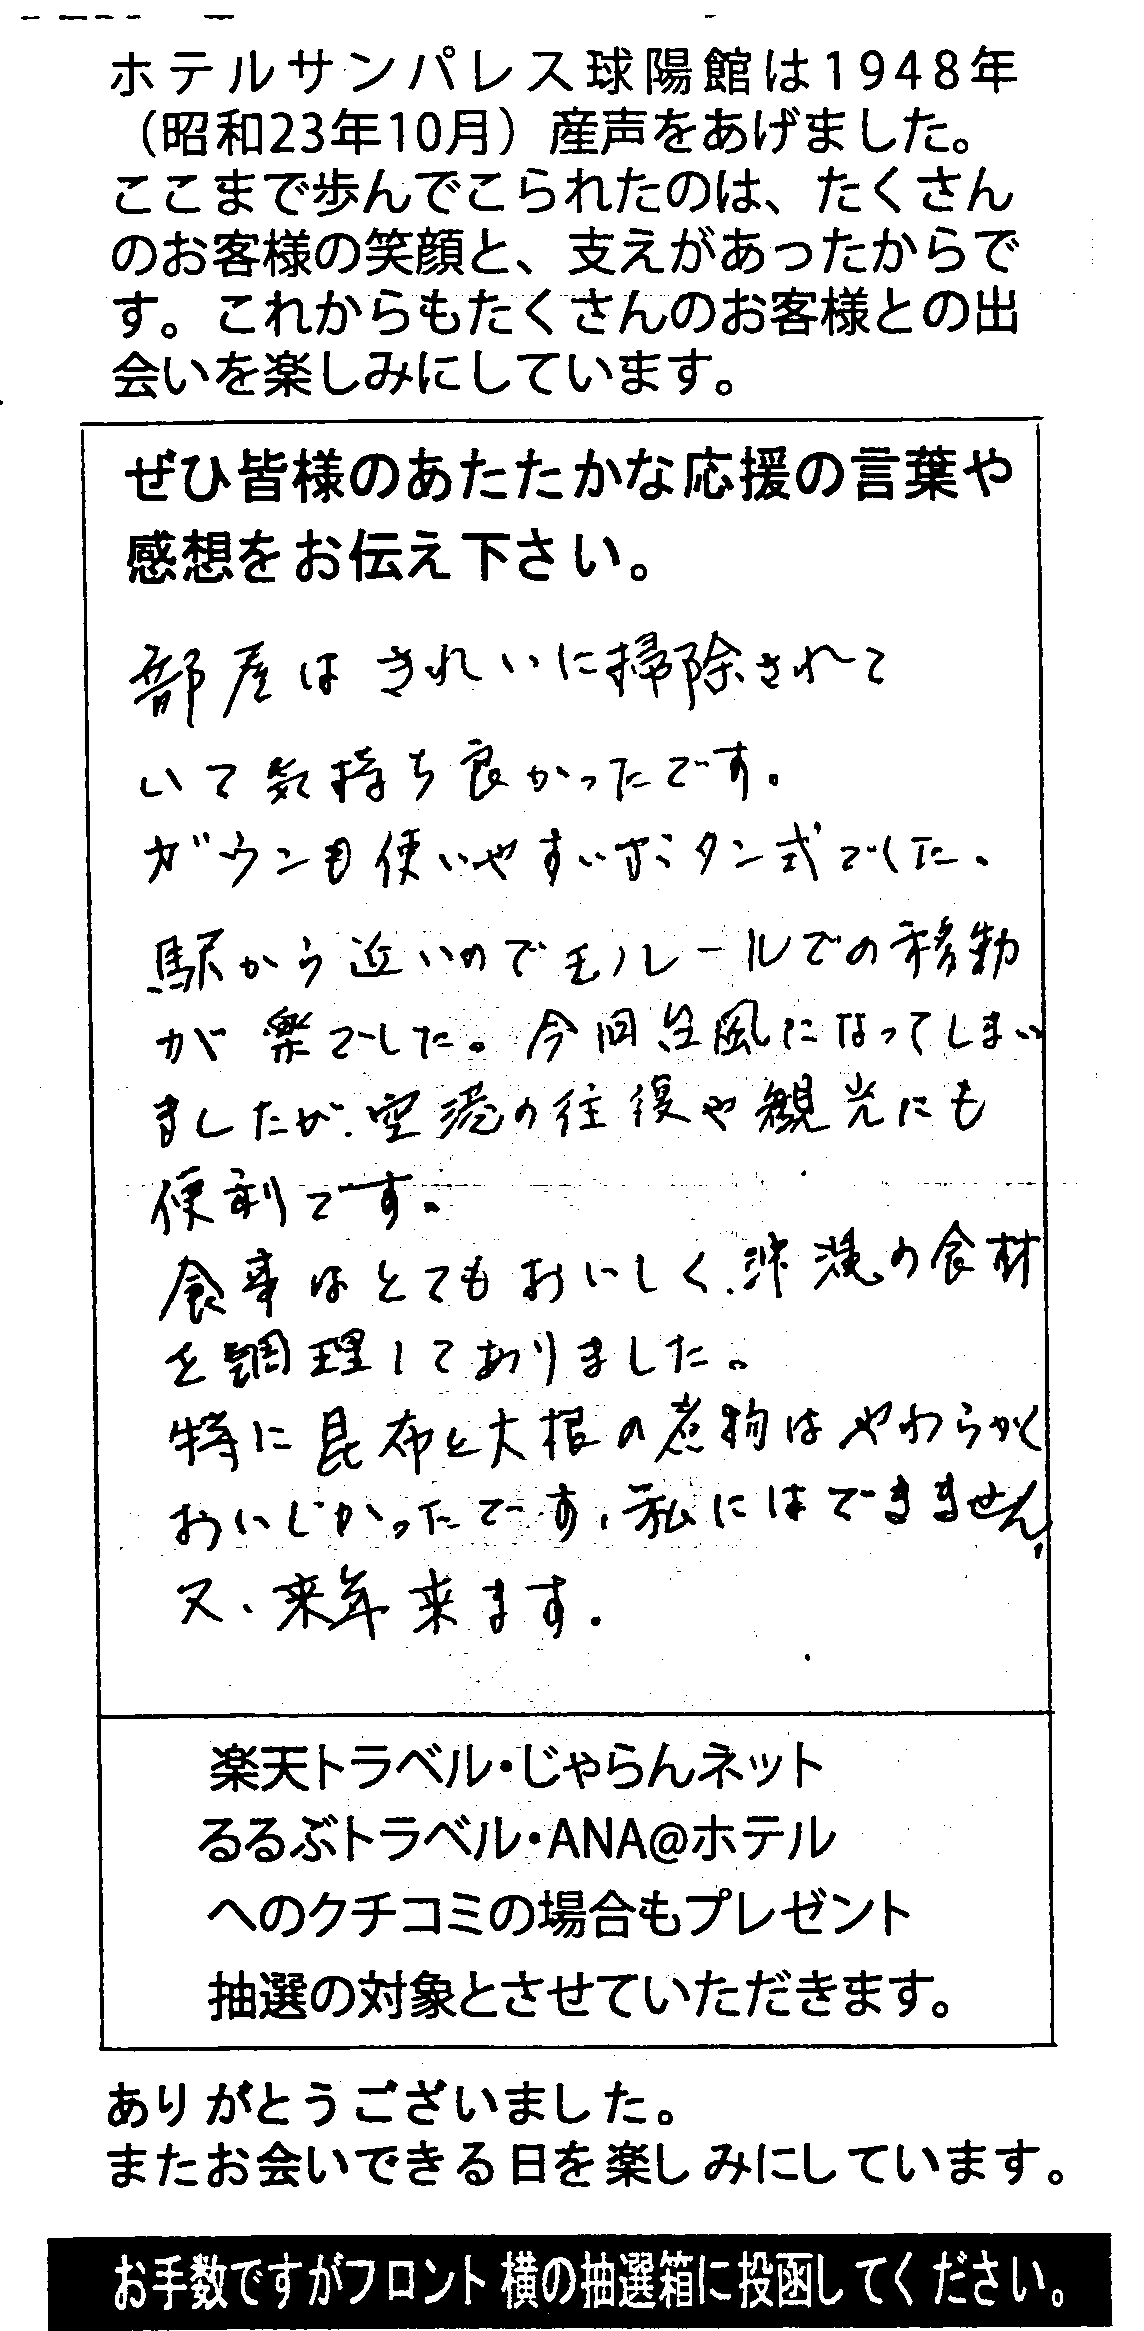 ホテルサンパレス球陽館は1948年
（昭和23年10月）産声をあげました。
ここまで歩んでこられたのは、たくさん
のお客様の笑顔と、支えがあったからで
す。これからもたくさんのお客様との出
会いを楽しみにしています。
ぜひ皆様のあたたかな応援の言葉や
感想をお伝え下さい。
部屋はきれいに掃除されて
いて気持ち良かったです。
ガウンも使いやすいボタン式でした。
駅から近いのでモノレールでの移動
が楽でした。今回台風になってしまい
ましたが、空港の往復や観光にも
便利です。
食事はとてもおいしく、沖縄の食材
を調理してありました。
特に昆布と大根の煮物はやわらかく
おいしかったです、私にはできません、
又、来年来ます。
楽天トラベル・じゃらんネット
るるぶトラベル・ANA@ホテル
へのクチコミの場合もプレゼント
抽選の対象とさせていただきます。
ありがとうございました。
またお会いできる日を楽しみにしています。
お手数ですがフロント横の抽選箱に投函してください。